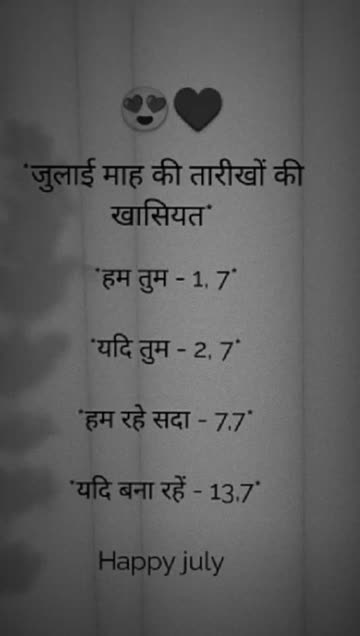 *जुलाई माह की तारीखों की
खासियत*
*हम तुम - 1, 7*
*यदि तुम - 2, 7*
*हम रहे सदा - 7,7*
*यदि बना रहें - 13,7*
Happy july